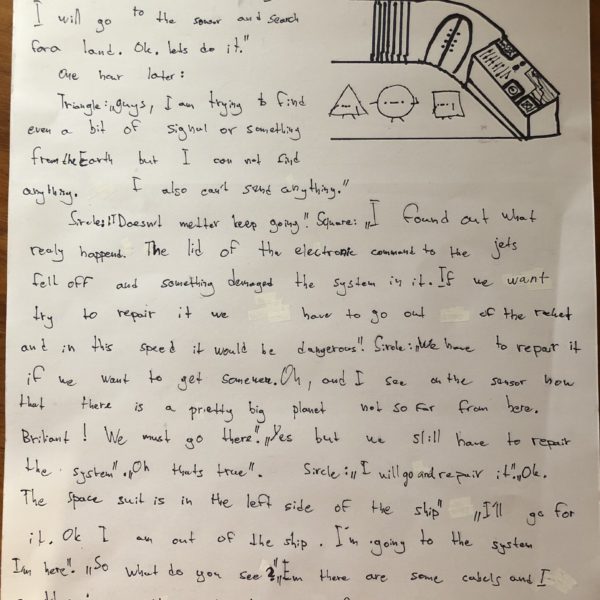 I will go to the sensor and search
for a land. Ok. lets do it."
One hour later:
Triangle: „guys, I am trying to find
even a bit of signal or something
from the Earth but I can not find
anything. I also can't send anything."
Sircle: „IT Doesn't metter keep going". Square: „I found out what
realy happend. The lid of the electronic command to the jets
fell off and something damaged the system in it. If we want
try to repair it we have to go out of the rocket
and in this speed it would be dangerous". Sircle: „We have to repair it
if we want to get somewere. Oh, and I see on the sensor now
that there is a prietty big planet not so far from here.
Briliant! We must go there". „Yes but we still have to repair
the system". „Oh thats true". Sircle: „I will go and repair it". „Ok.
The space suit is in the left side of the ship" „I'll go for
it. Ok I am out of the ship. I'm going to the system
Im here". „So what do you see?" „Em there are some cabels and I